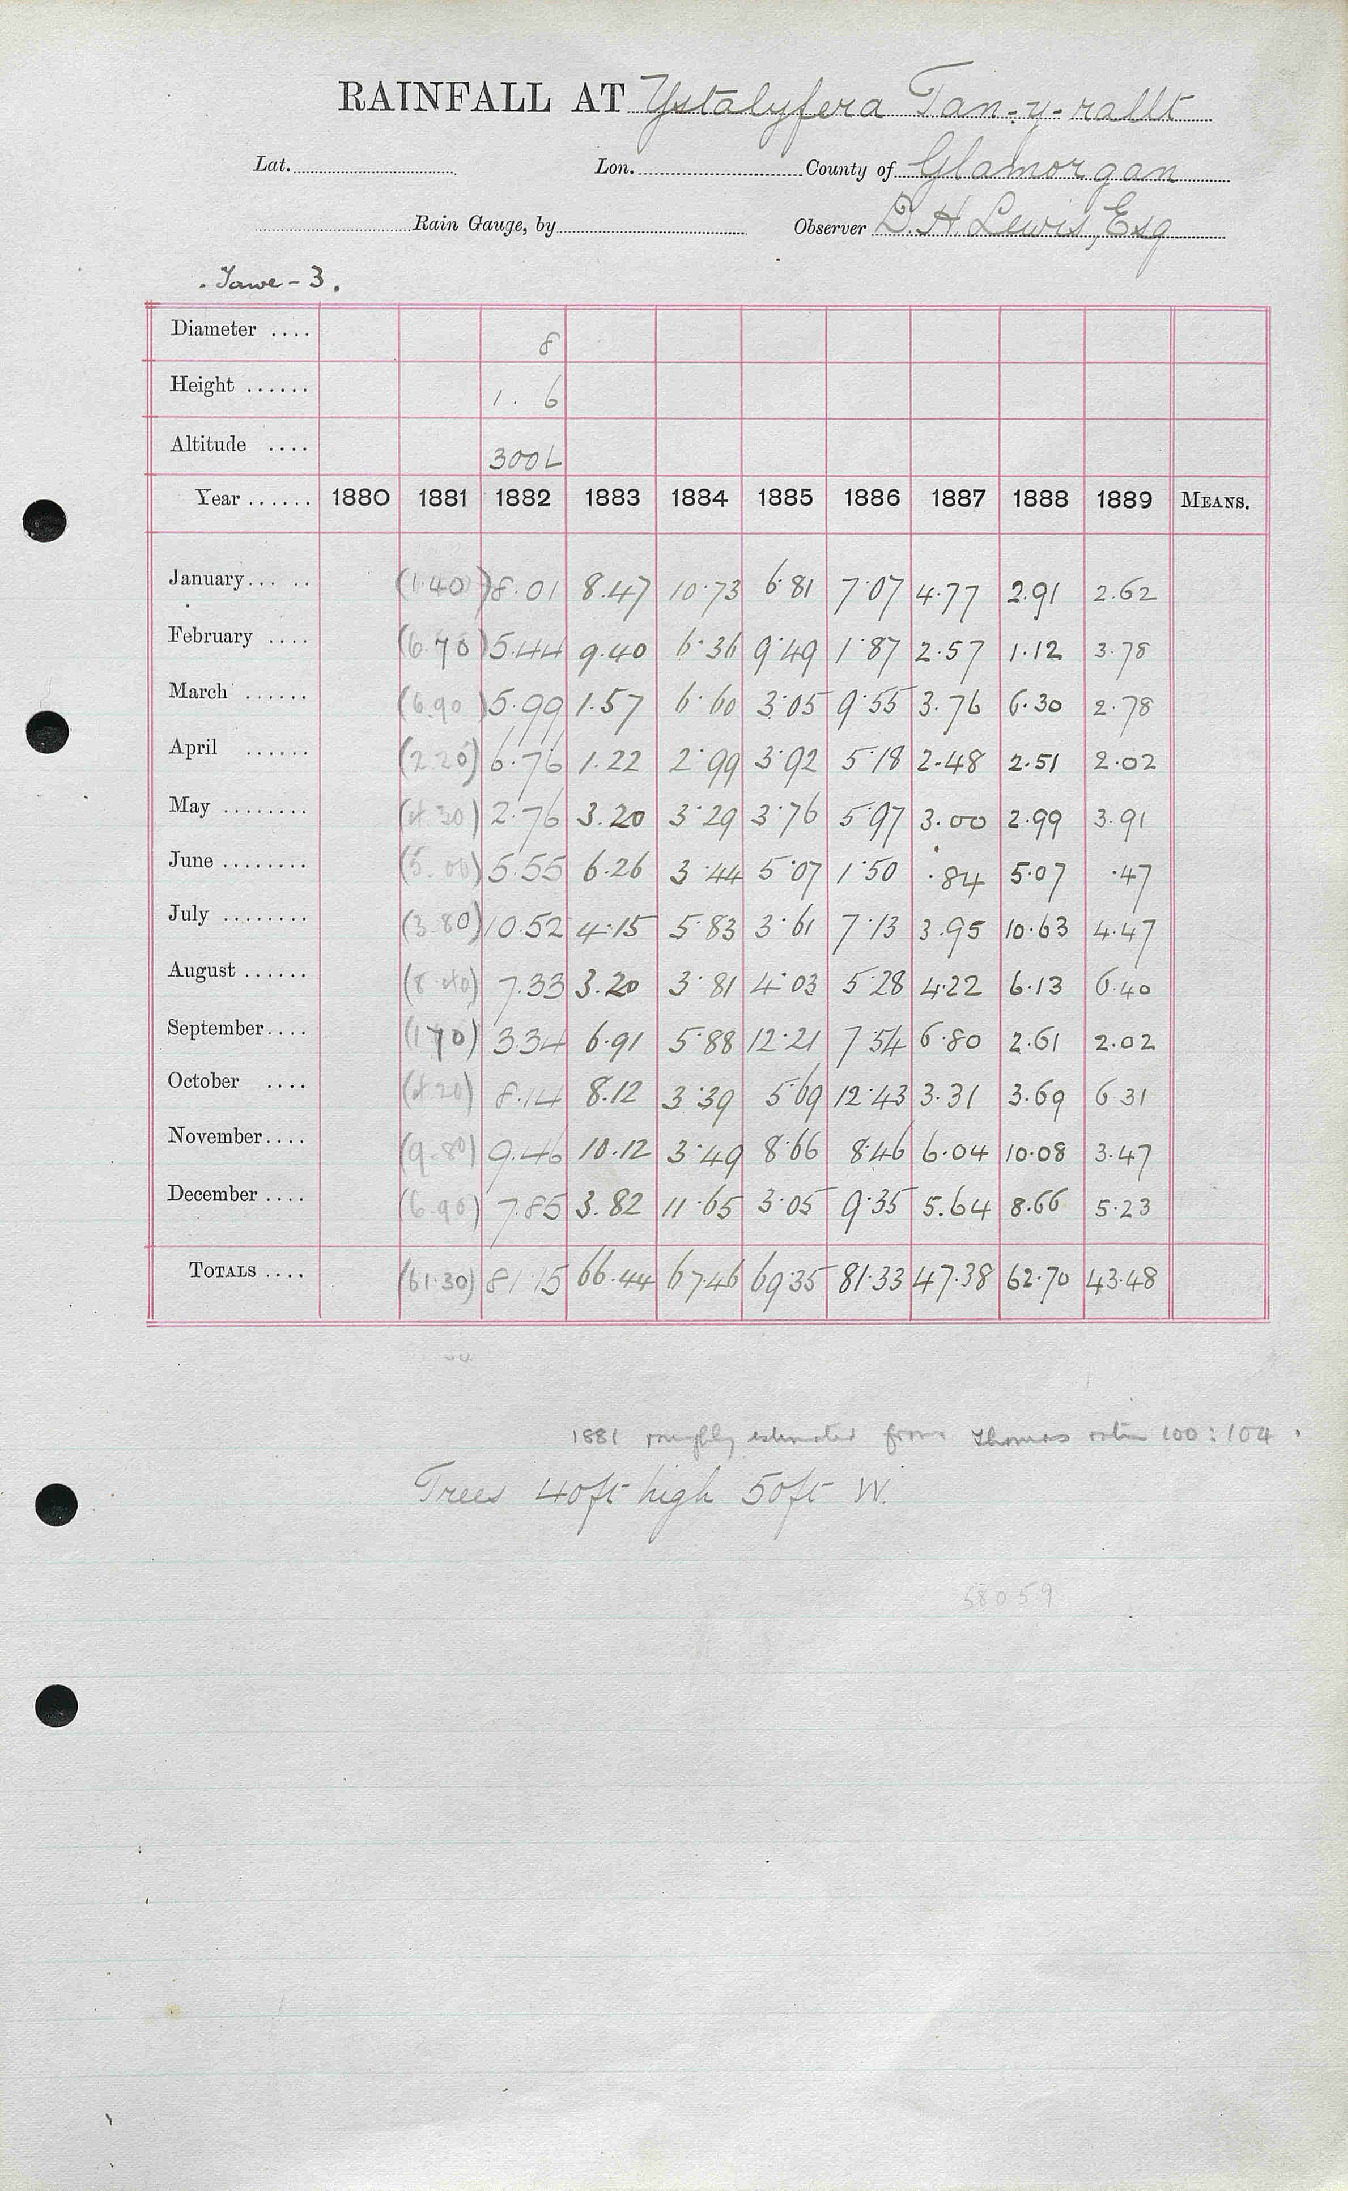 RAINFALL AT Ystalyfera Tan-y-rallt
Lat. Lon. County of Glamorgan
Rain Gauge, by Observer D. H. Lewis, Esq
. Tawe - 3 .
Diameter .... 8
Height ...... 1. 6
Altitude .... 300L
Year ...... 1880 1881 1882 1883 1884 1885 1886 1887 1888 1889 MEANS.
January... .. (1.40) 8.01 8.47 10.73 6.81 7.07 4.77 2.91 2.62
February .... (6.70) 5.44 9.40 6.36 9.49 1.87 2.57 1.12 3.78
March ...... (6.90) 5.99 1.57 6.60 3.05 9.55 3.76 6.30 2.78
April ...... (2.20) 6.76 1.22 2.99 3.92 5.18 2.48 2.51 2.02
May ........ (4.30) 2.76 3.20 3.29 3.76 5.97 3.00 2.99 3.91
June ........ (5.00) 5.55 6.26 3.44 5.07 1.50 .84 5.07 .47
July ........ (3.80) 10.52 4.15 5.83 3.61 7.13 3.95 10.63 4.47
August ...... (8.40) 7.33 3.20 3.81 4.03 5.28 4.22 6.13 6.40
September.... (1.70) 3.34 6.91 5.88 12.21 7.54 6.80 2.61 2.02
October .... (4.20) 8.14 8.12 3.39 5.69 12.43 3.31 3.69 6.31
November.... (9.80) 9.46 10.12 3.49 8.66 8.46 6.04 10.08 3.47
December .... (6.90) 7.85 3.82 11.65 3.05 9.35 5.64 8.66 5.23
TOTALS .... (61.30) 81.15 66.44 67.46 69.35 81.33 47.38 62.70 43.48
1881 roughly estimated from Thomas ratio 100 : 104 .
Trees 40ft high 50ft W.
58059